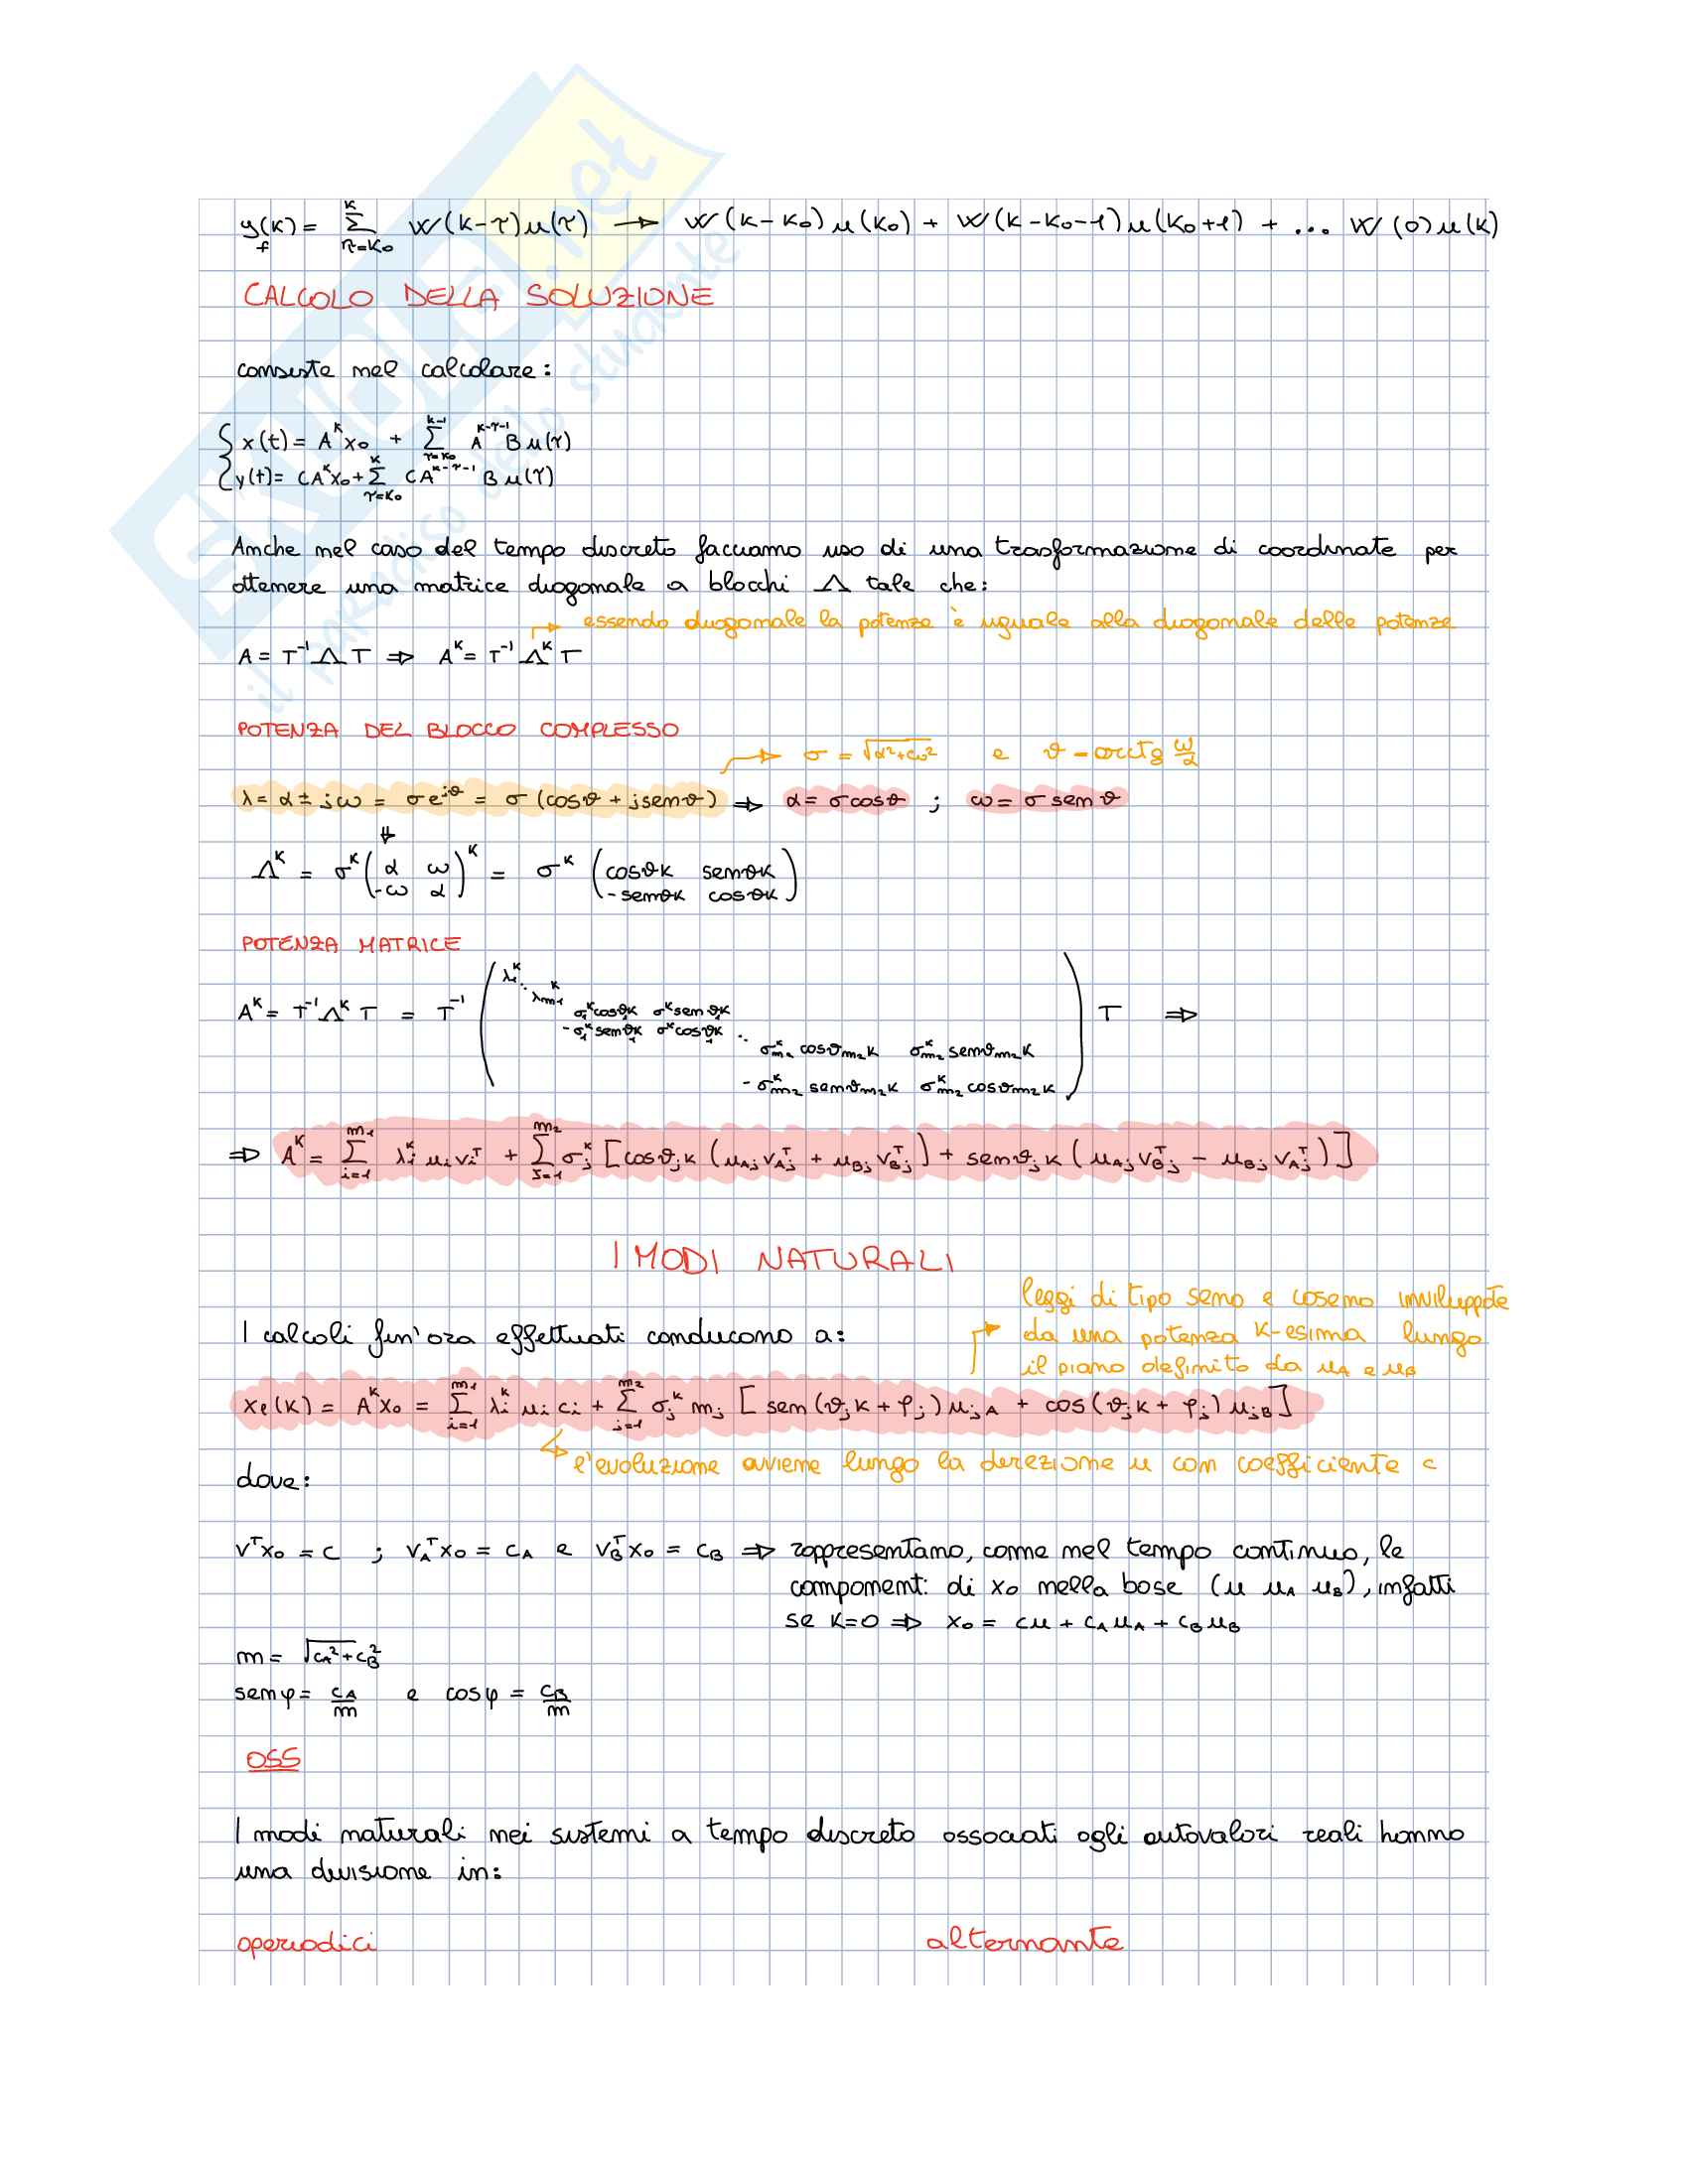 y_f(k) = Σ_{τ=k₀}^{k} W(k-τ)u(τ) → W(k-k₀)u(k₀) + W(k-k₀-1)u(k₀+1) + ... W(0)u(k)
CALCOLO DELLA SOLUZIONE
consiste nel calcolare:
{ x(t) = A^k x₀ + Σ_{τ=k₀}^{k-1} A^{k-τ-1} B u(τ)
y(t) = CA^k x₀ + Σ_{τ=k₀}^{k} CA^{k-τ-1} B u(τ)
Anche nel caso del tempo discreto facciamo uso di una trasformazione di coordinate per
ottenere una matrice diagonale a blocchi Λ tale che:
→ essendo diagonale la potenza è uguale alla diagonale delle potenze
A = T⁻¹ Λ T ⇒ A^k = T⁻¹ Λ^k T
POTENZA DEL BLOCCO COMPLESSO
→ σ = √(α²+ω²) e ϑ = arctg ω/α
λ = α ± jω = σe^{jϑ} = σ (cosϑ + jsenϑ) ⇒ α = σcosϑ ; ω = σ senϑ
⇓
Λ^k = σ^k (α ω; -ω α)^k = σ^k (cosϑk senϑk; -senϑk cosϑk)
POTENZA MATRICE
A^k = T⁻¹Λ^k T = T⁻¹ ( λ₁^k ⋱ λ_{m₁}^k σ₁^k cosϑ₁k σ₁^k senϑ₁k -σ₁^k senϑ₁k σ₁^k cosϑ₁k ⋱ σ_{m₂}^k cosϑ_{m₂}k σ_{m₂}^k senϑ_{m₂}k -σ_{m₂}^k senϑ_{m₂}k σ_{m₂}^k cosϑ_{m₂}k ) T ⇒
⇒ A^k = Σ_{i=1}^{m₁} λ_i^k u_i v_i^T + Σ_{j=1}^{m₂} σ_j^k [cosϑ_j k (u_{Aj} v_{Aj}^T + u_{Bj} v_{Bj}^T) + senϑ_j k (u_{Aj} v_{Bj}^T - u_{Bj} v_{Aj}^T)]
I MODI NATURALI
leggi di tipo seno e coseno inviluppate
I calcoli fin'ora effettuati conducono a: → da una potenza k-esima lungo
il piano definito da u_A e u_B
x_ℓ(k) = A^k x₀ = Σ_{i=1}^{m₁} λ_i^k u_i c_i + Σ_{j=1}^{m₂} σ_j^k m_j [sen(ϑ_j k + φ_j) u_{jA} + cos(ϑ_j k + φ_j) u_{jB}]
↳ l'evoluzione avviene lungo la direzione u con coefficiente c
dove:
v^T x₀ = c ; v_A^T x₀ = c_A e v_B^T x₀ = c_B ⇒ rappresentano, come nel tempo continuo, le
componenti di x₀ nella base (u u_A u_B), infatti
se k=0 ⇒ x₀ = cu + c_A u_A + c_B u_B
m = √(c_A² + c_B²)
senφ = c_A/m e cosφ = c_B/m
OSS
I modi naturali nei sistemi a tempo discreto associati agli autovalori reali hanno
una divisione in:
aperiodici alternante
SKUOLA.net
il paradiso dello studente